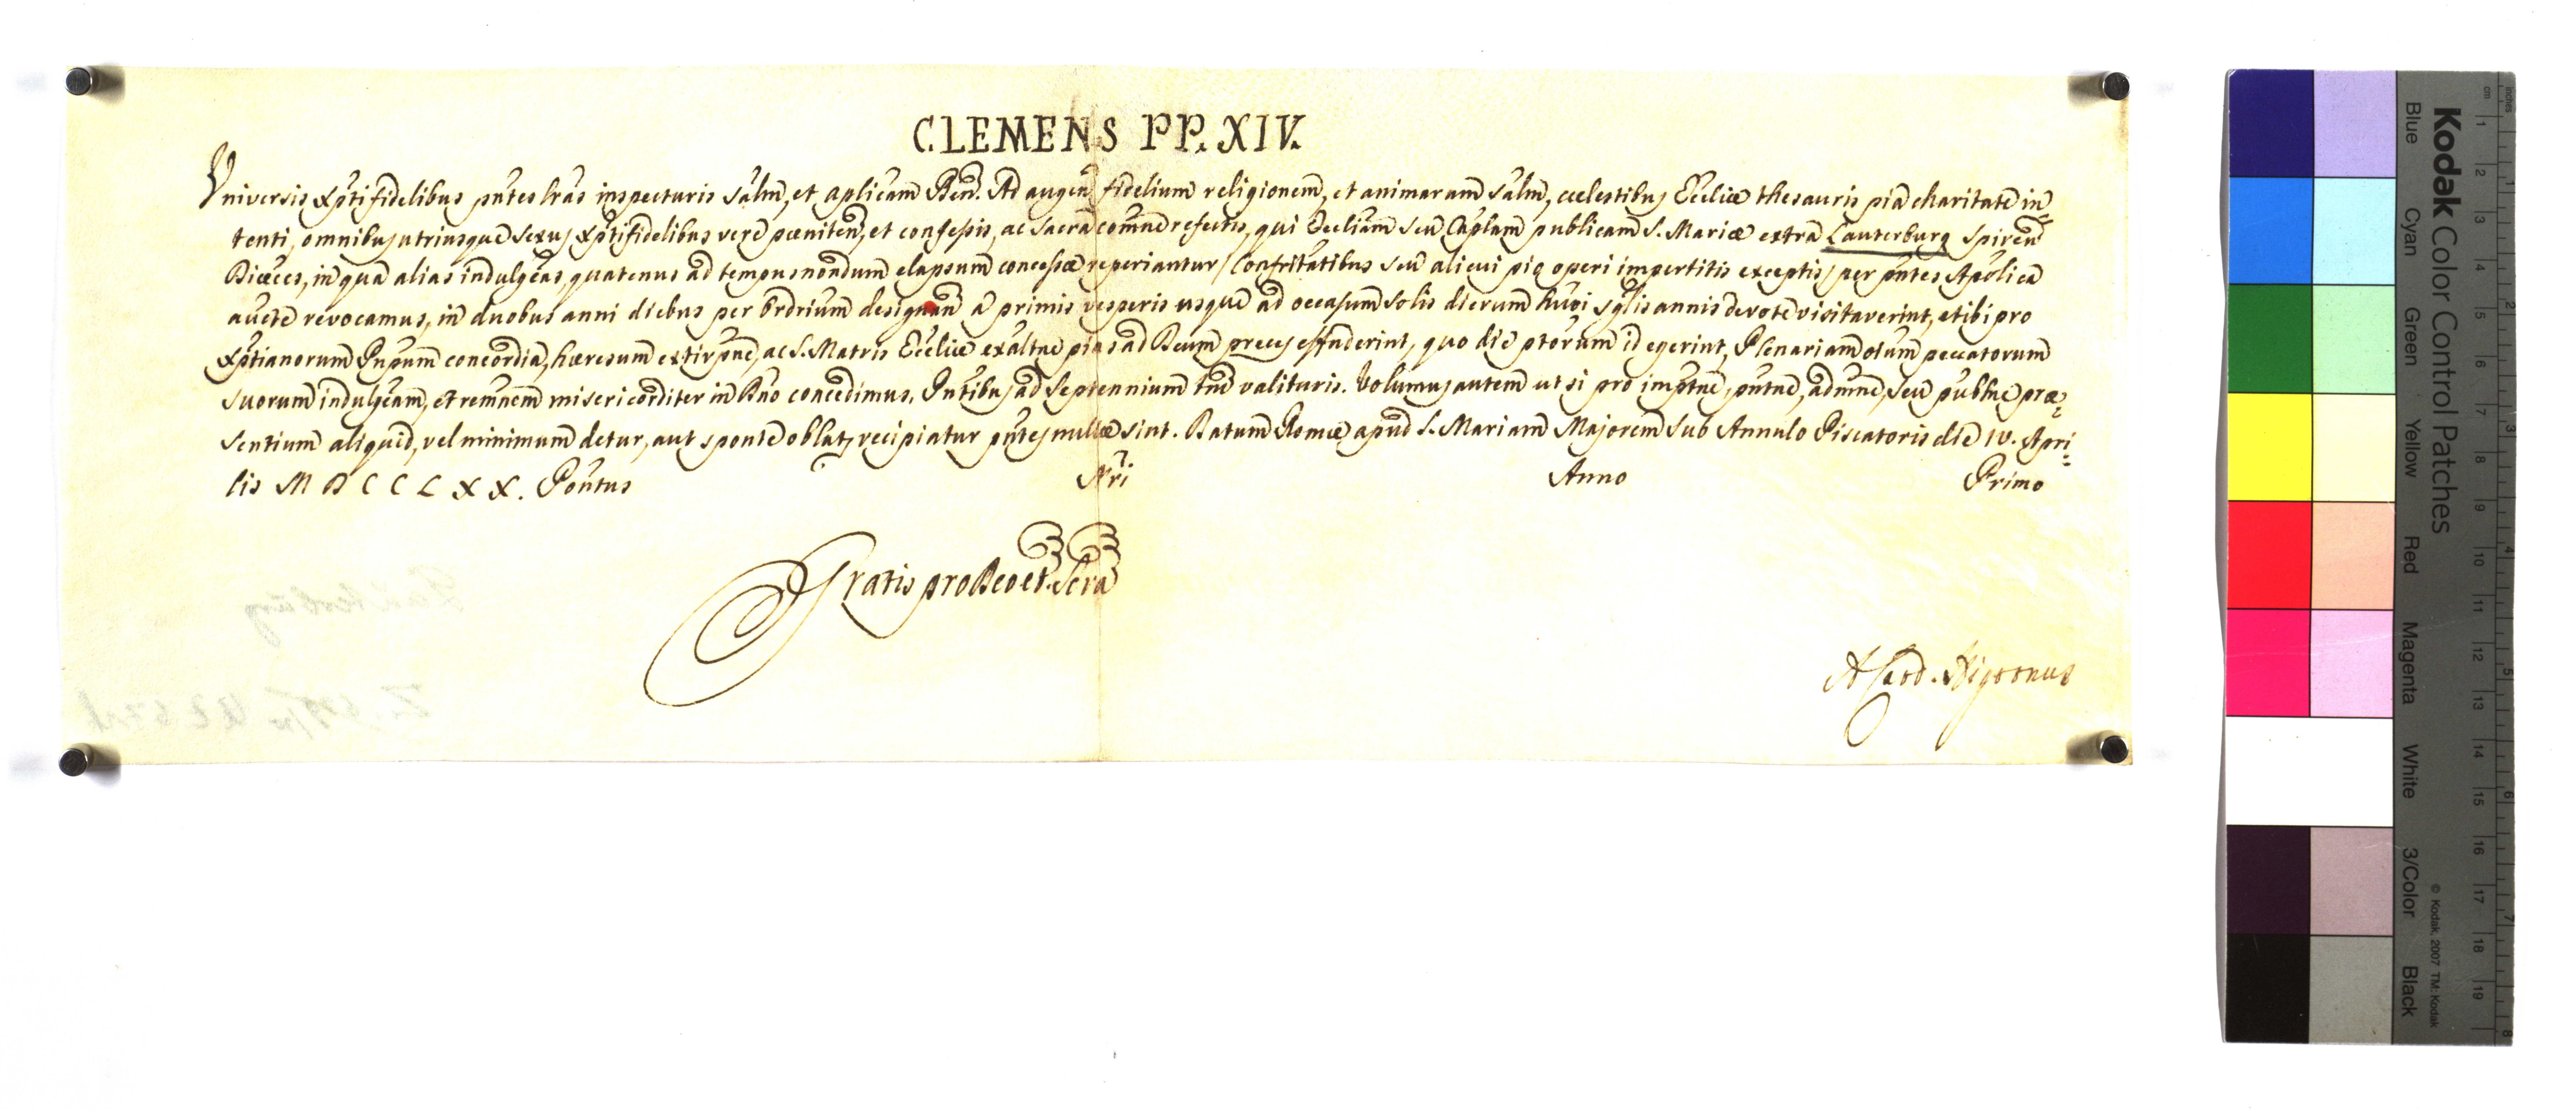 CLEMENS PP. XIV.
Universis Xpti fidelibus pntes lras inspecturis Salm, et aplicam Ben. Ad augen fidelium religionem, et animarum Salm, cœlestibus Ecclie thesauris pia charitate in
tenti, omnibus utriusque sexus Xptifidelibus vere pœniten, et confessis, ac Sacra comune refectis, qui Eccliam seu Caplam publicam S. Mariæ extra Lauterburg Spiren
Diœces, in qua alias indulgeas, quatenus ad tempus nondum elapsum concessæ reperiantur / Confritatibus seu alicui pio operi impertitis exceptis / per pntes Apolica
aucte revocamus, in duobus anni diebus per Ordrium designan a primis vesperis usque ad occasum solis dierum huoi sglis annis devote visitaverint, et ibi pro
Xptianorum Pnpum concordia, hæresum extirpne, ac S. Matris Eccliæ exaltne pias ad Deum preces effuderint, quo die ptorum id egerint, Plenariam oium peccatorum
suorum indulgeam, et remnem misericorditer in Dno concedimus. Pntibus ad Septennium tm valituris. Volumus autem ut si pro imptne, pntne, admne, seu publne præ=
sentium aliquid, vel minimum detur, aut sponte oblat, recipiatur pntes nullæ sint. Datum Romæ apud S. Mariam Majorem Sub Annulo Piscatoris die IV. Apri=
lis MDCCLXX. Pontus Nri Anno Primo
Gratis pro Deo et Scra
A Card. Nigronus
Lauterburg
Kodak Color Control Patches
Blue Cyan Green Yellow Red Magenta White 3/Color Black
© Kodak, 2007 TM: Kodak
cm 1 2 3 4 5 6 7 8 9 10 11 12 13 14 15 16 17 18 19
inches 1 2 3 4 5 6 7 8